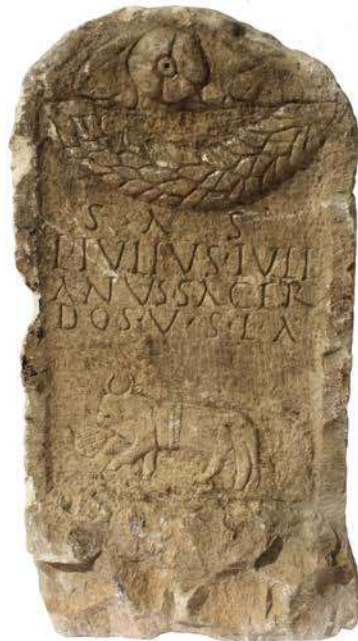 S A S
L IVLIVS·IVLI
ANVS SACER
DOS·V·S·L A